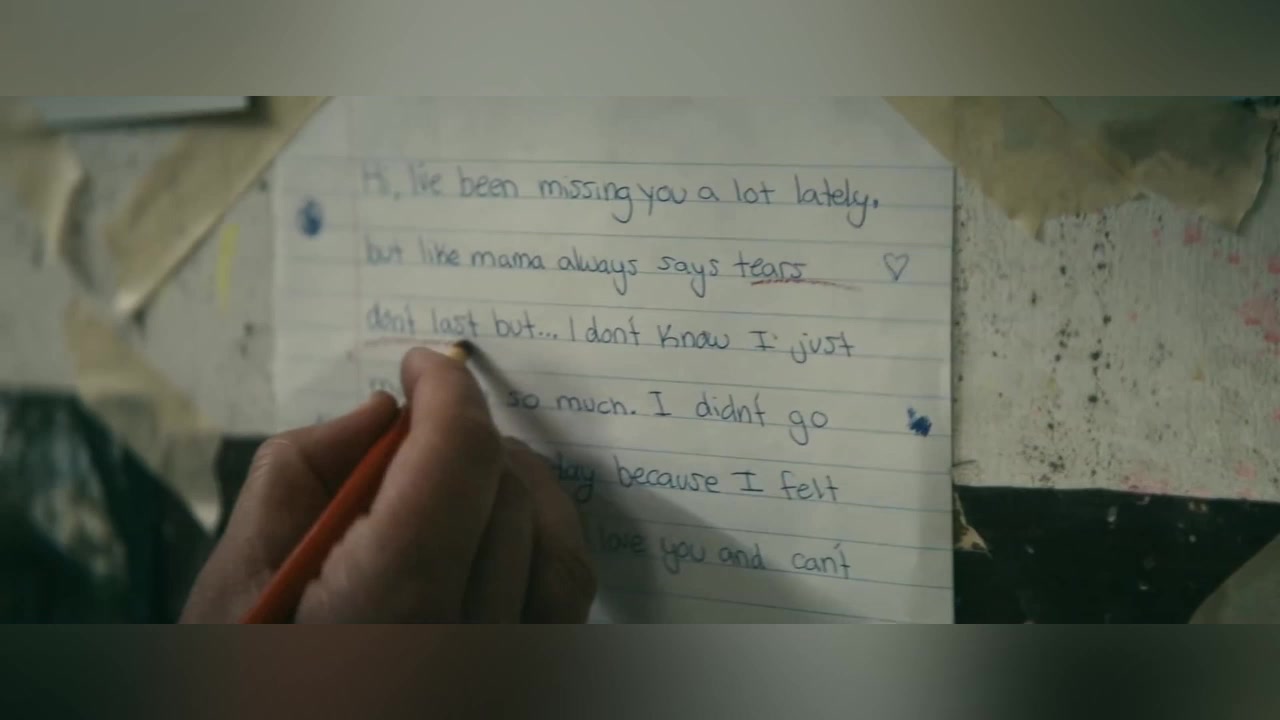 Hi, I've been missing you a lot lately.
but like mama always says tears
don't last but... I don't know I just
so much. I didn't go
because I felt
love you and can't